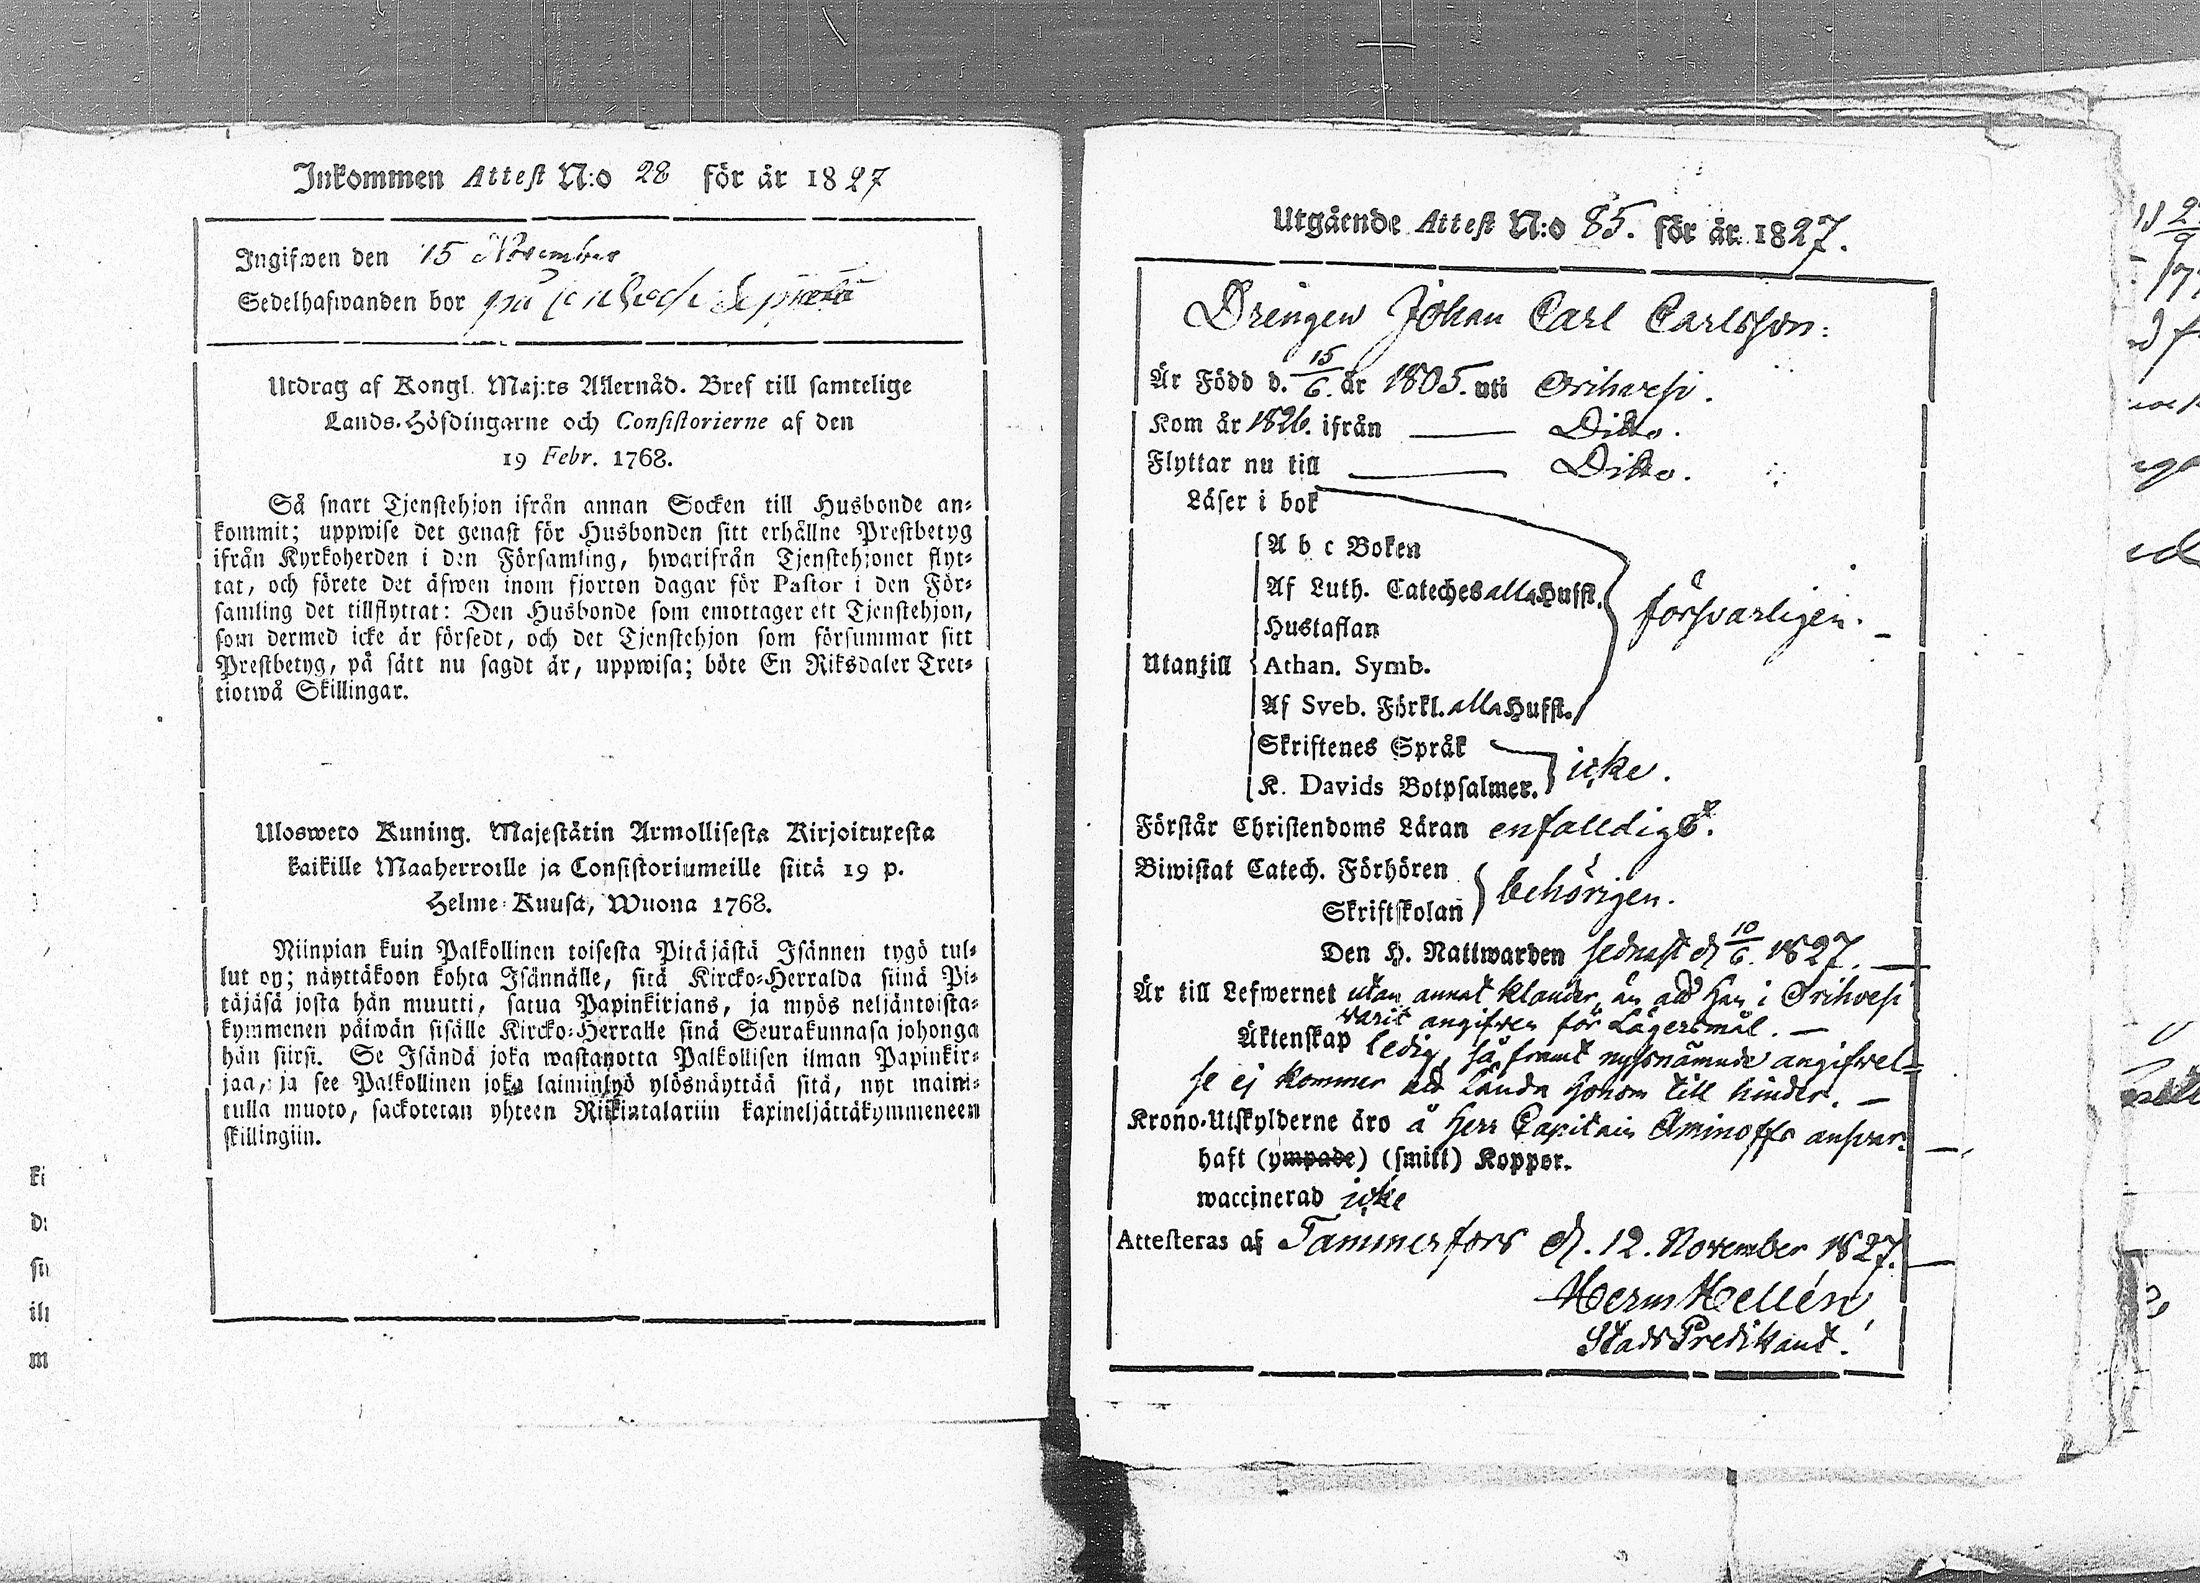 Inkommen Attest N:o 28 för år 1827
Ingifwen den 15 November
Sedelhafwanden bor på
Utdrag af Kongl. Maj:ts Allernåd. Bref till samtelige
Lands-Höfdingarne och Consistorierne af den
19 Febr. 1768.
Så snart Tjenstehjon ifrån annan Socken till Husbonde an-
kommit; uppwise det genast för Husbonden sitt erhållne Prestbetyg
ifrån Kyrkoherden i den Församling, hwarifrån Tjenstehjonet flyt-
tat, och förete det äfwen inom fjorton dagar för Pastor i den För-
samling det tillflyttat: Den Husbonde som emottager ett Tjenstehjon,
som dermed icke är försedt, och det Tjenstehjon som försummar sitt
Prestbetyg, på sätt nu sagdt är, uppwisa; böte En Riksdaler Tret-
tiotwå Skillingar.
Ulosweto Kuning. Majestätin Armollisesta Kirjoituxesta
kaikille Maaherroille ja Consistoriumeille siitä 19 p.
Helme-Kuusa, Wuona 1768.
Niinpian kuin Palkollinen toisesta Pitäjästä Isännen tygö tul-
lut on; näyttäkoon kohta Isännälle, sitä Kircko-Herralda siinä Pi-
täjäsä josta hän muutti, satua Papinkirjans, ja myös neljäntoista-
kymmenen päiwän sisälle Kircko-Herralle sinä Seurakunnasa johonga
hän siirsi. Se Isändä joka wastanotta Palkollisen ilman Papinkir-
jaa, ja see Palkollinen joka laiminlyö ylösnäyttää sitä, nyt maini-
tulla muoto, sackotetan yhteen Riikintalariin kaxineljättäkymmeneen
skillingiin.
Utgående Attest N:o 85. för år 1827.
Drengen Johan Carl Carlsson:
Är Född d. 15/6. år 1805. uti Orihvesi.
Kom år 1826. ifrån Ditto.
Flyttar nu till Ditto.
Läser i bok
A b c Boken
Af Luth. Cateches alla Hufst.
försvarligen.
Hustaflan
Utantill Athan. Symb.
Af Sveb. Förkl. alla Hufst.
Skriftenes Språk
K. Davids Botpsalmer. icke.
Förstår Christendoms Läran enfalldigt.
Biwistat Catech. Förhören
Skriftskolan behörigen.
Den H. Nattwarden sednast d 10/6. 1827.
Är till Lefwernet utan annat klander, än att han i Orihvesi
varit angifven för Lägersmål.
Äktenskap ledig, så framt nyssnämnde angifvel-
se ej kommer att lända honom till hinder.
Krono-Utskylderne äro å Herr Capitain Aminoffs ansvar.
haft (ympade) (smitt) Koppor.
waccinerad icke
Attesteras af Tammerfors d. 12. November 1827.
Herm Hellén,
Stads Predikant.